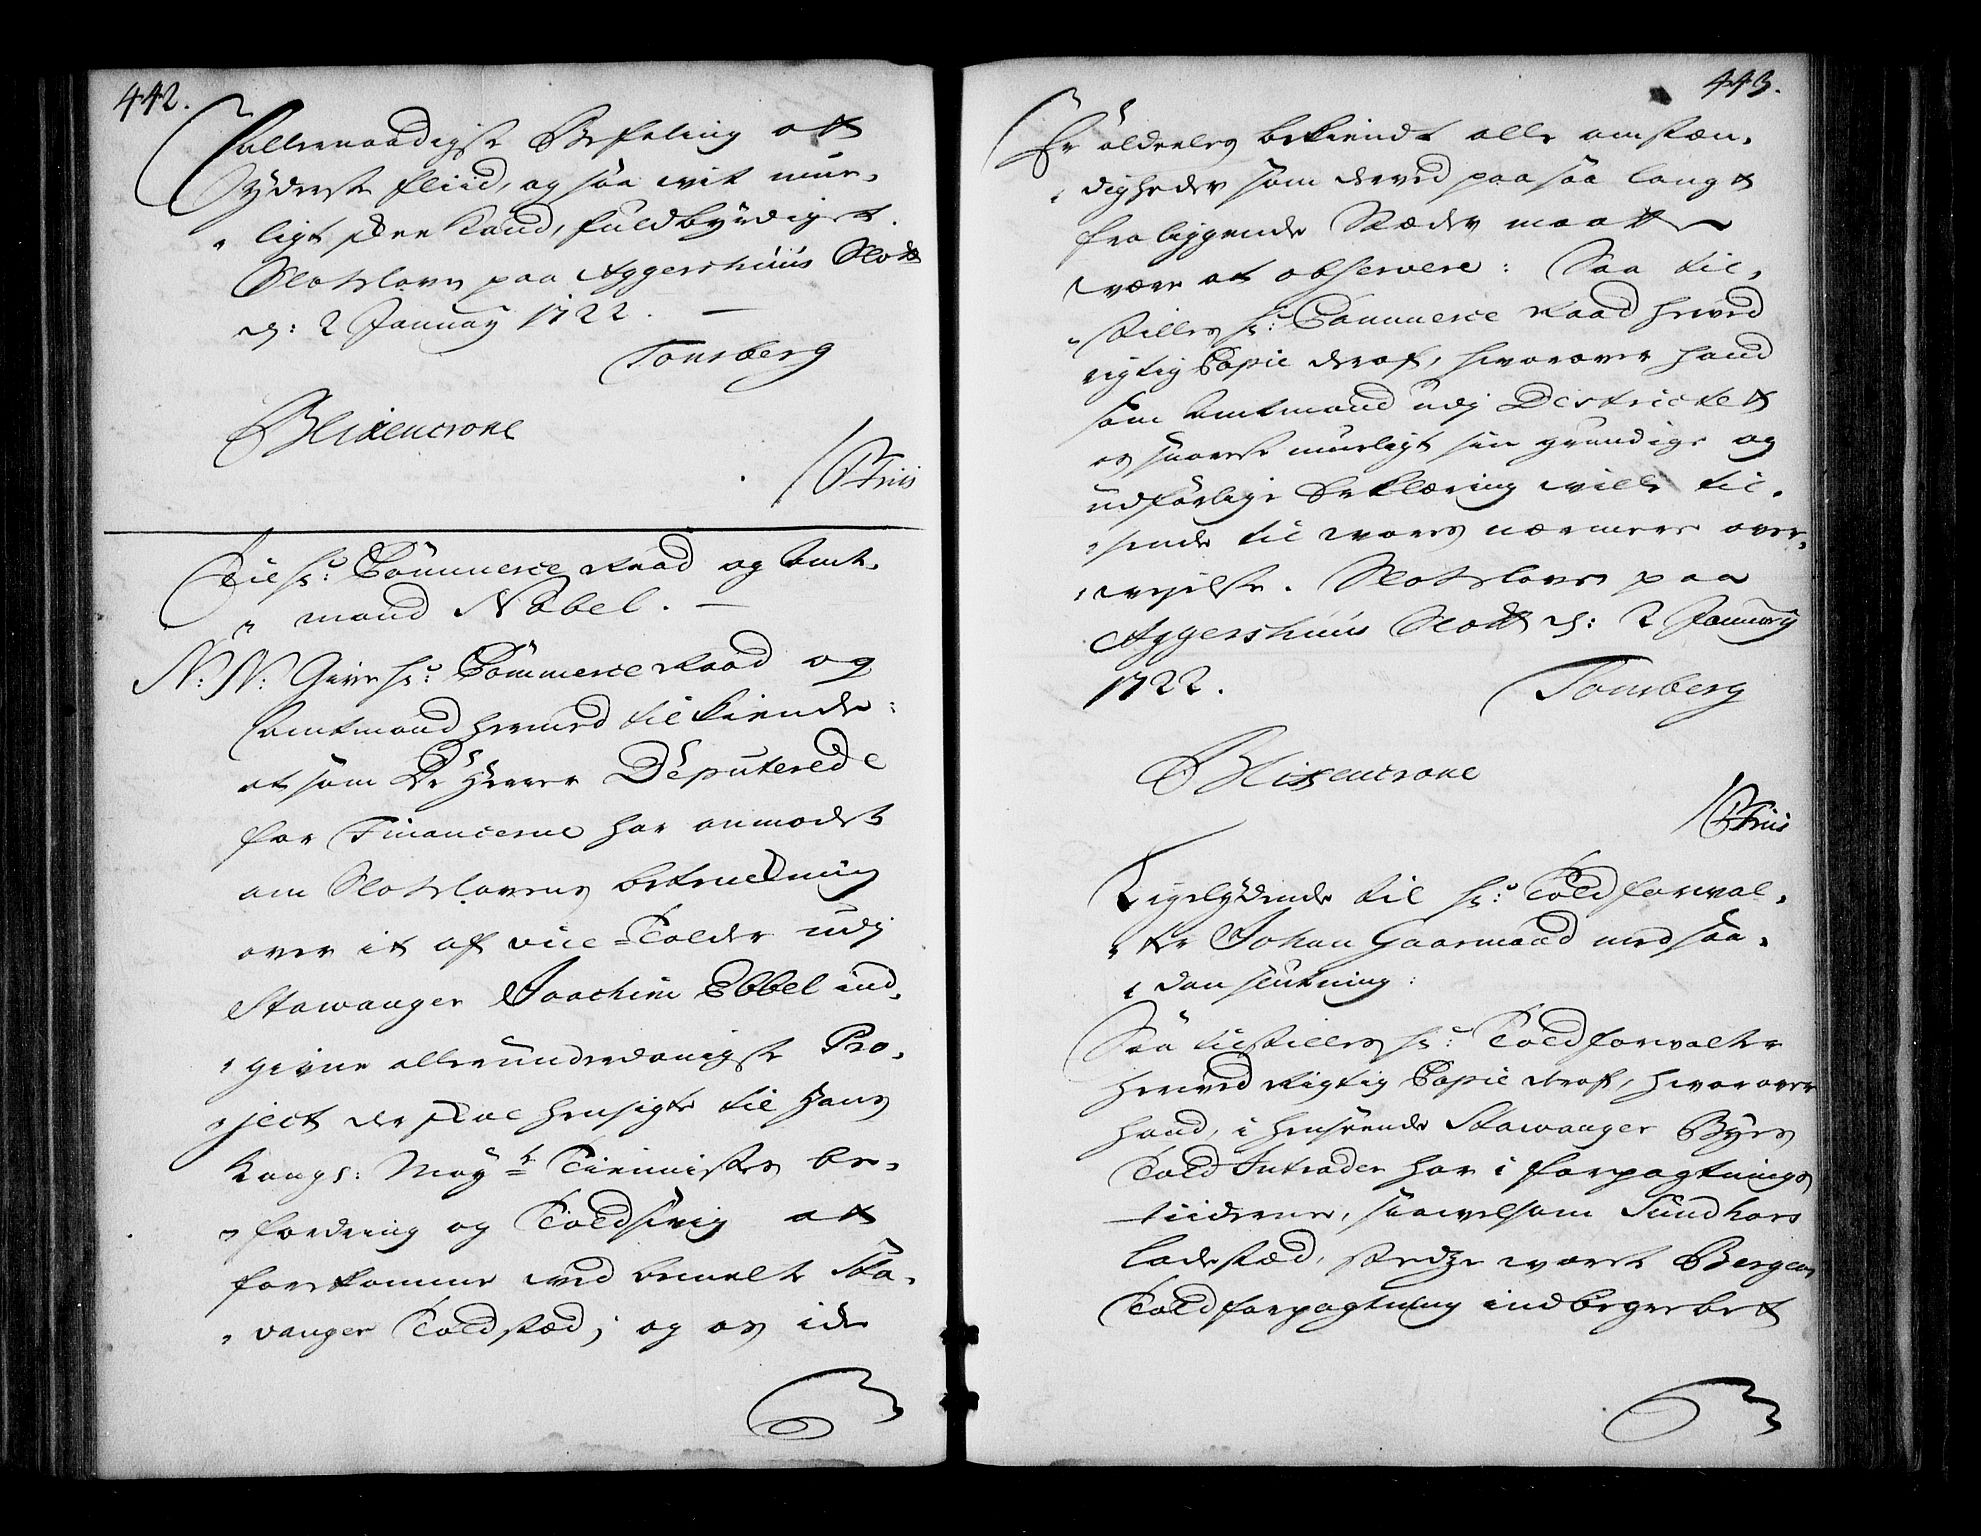 442.
allernaadigste Befaling att
Yderste fliid, og saa vit mue„
„ligt skee kand, fuldbyrdiget.
Slotsloven paa Aggershuus Slott
d: 2 January 1722. —
Tonsberg
Blixencrone
P Friis
Til Hr: Commerce Raad og Amt„
„mand Nobel. —
N: N: Give Hr: Commerce Raad og
Amtmand hermed tilkiende:
at som De Herrer Deputerede
for Financerne har anmodet
om Slotslovens betenckning
over it af vice-Tolder udj
Stawanger Joachim Ebbel ind„
„givne allerunderdanigste Pro„
„ject der skal hensigte til Hans
Kongl: Mayts Tiennistes be„
„fordring og Toldsvig att
forekomme ved bemelte Sta„
„vanger Toldstæd; og os icke
443.
Er aldeeles bekiendt alle omstæn„
„digheder som derved paa saa langt
fraliggende Stæder maatte
være at observere: Saa til„
„stilles Hr: Commerce Raad herved
rigtig Copie deraf, hvorover hand
som Amtmand udj Districtett
os snarest mueligt sin grundige og
udførlige Erklæring ville til„
„sende til vores nærmere over„
„vejelse. Slotsloven paa
Aggershuus Slott d: 2 January
1722.
Tonsberg
Blixencrone
P Friis
Ligelydende til Hr: Toldforval„
„ter Johan Gaarmand med saa„
„dan slutning:
Saa tilstilles Hr: Toldforvalter
herved Rigtig Copie deraf, hvorover
hand, i henseende Stawanger Byes
Told Intrader har i forpagtnings
tiiderne, saavelsom Sundhors
Ladestæd, stedze været Bergens
Toldforpagtning indbegrebet